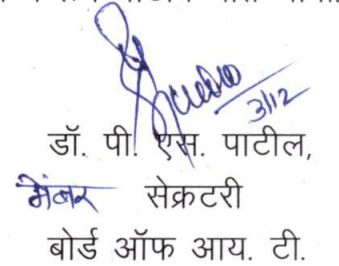 3/12
डॉ. पी. एस. पाटील,
मेंबर सेक्रटरी
बोर्ड ऑफ आय. टी.